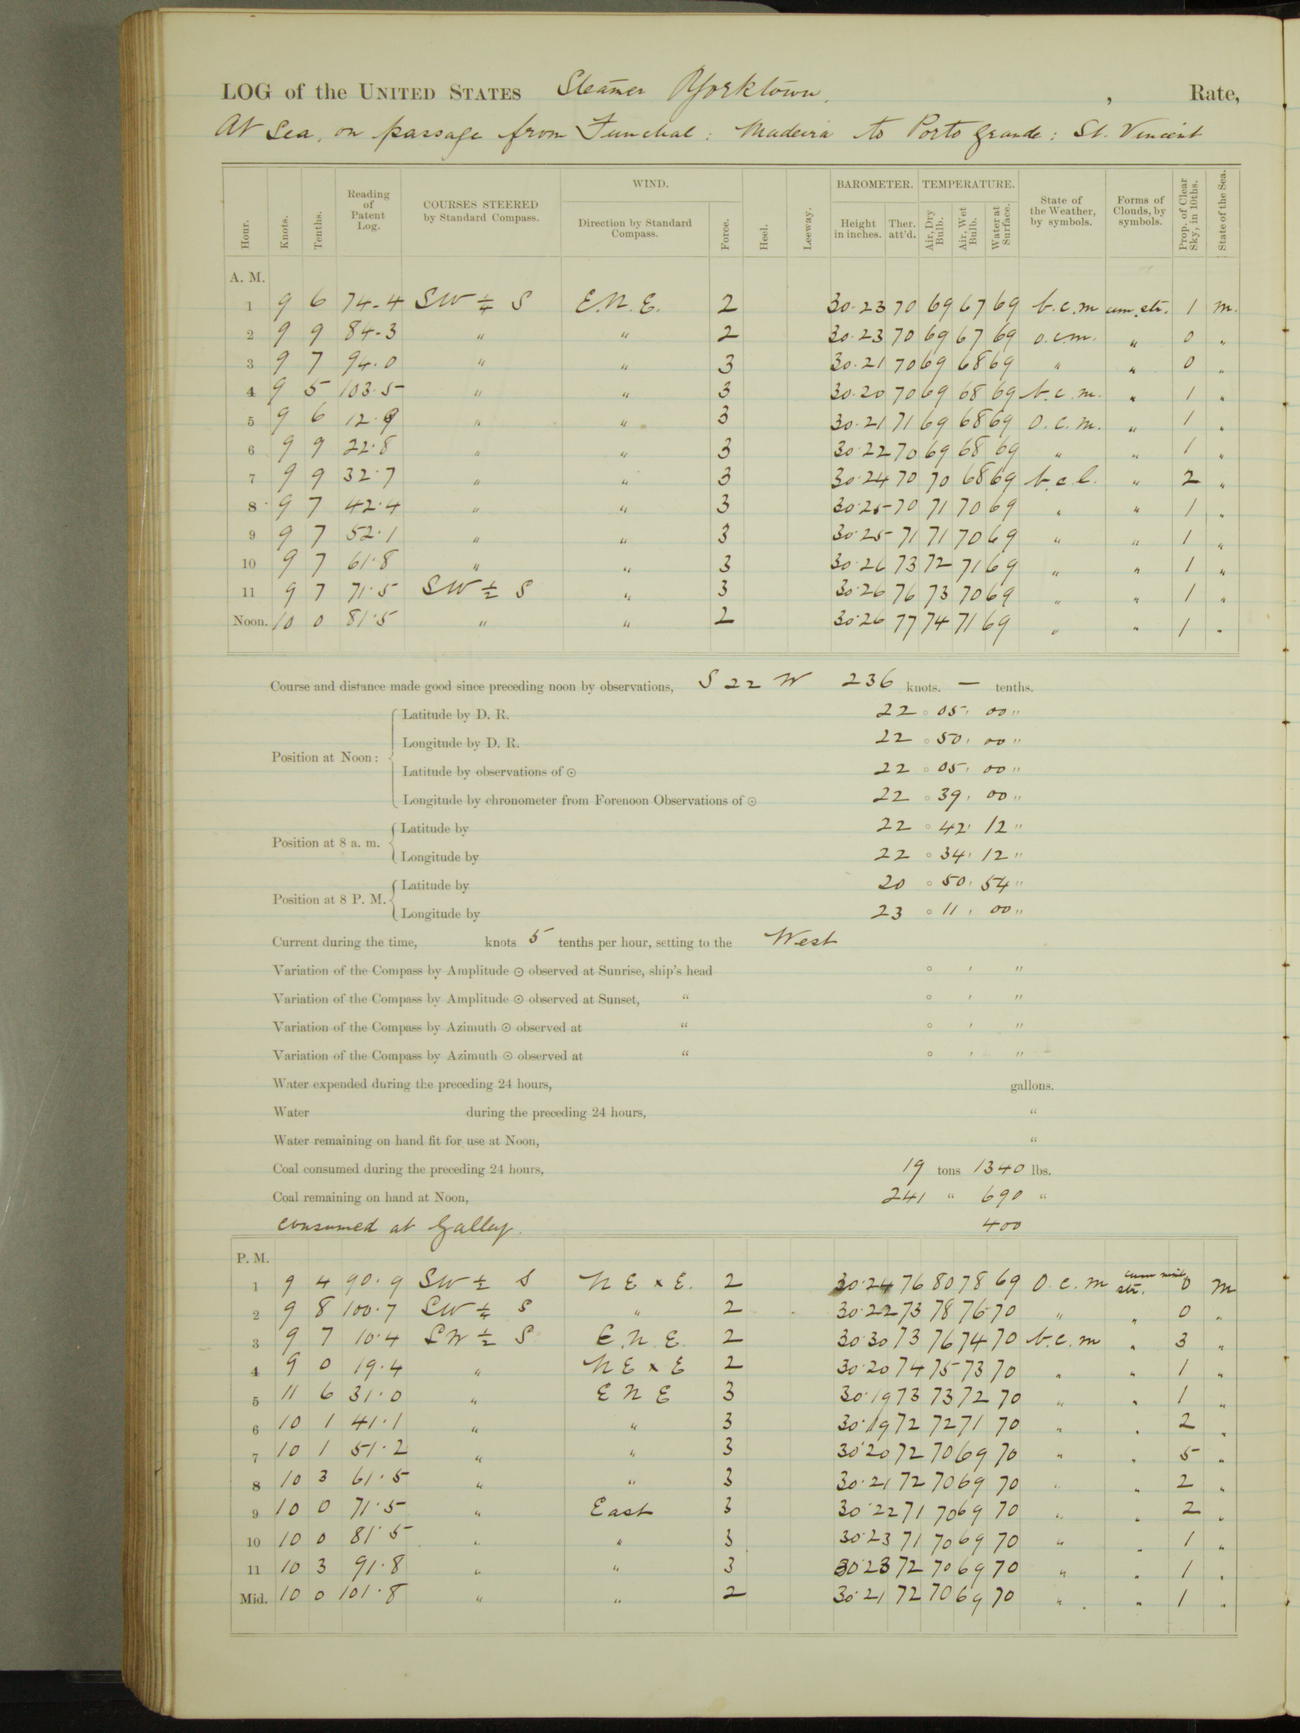 LOG of the UNITED STATES Steamer Yorktown, , Rate,
At Sea, on passage from Funchal: Madeira to Porto Grande: St. Vincent
Hour. Knots. Tenths. Reading of Patent Log. COURSES STEERED by Standard Compass. WIND. Direction by Standard Compass. Force. Heel. Leeway. BAROMETER. Height in inches. Ther. att'd. TEMPERATURE. Air, Dry Bulb. Air, Wet Bulb. Water at Surface. State of the Weather, by symbols. Forms of Clouds, by symbols. Prop. of Clear Sky, in 10ths. State of the Sea.
A. M.
1 9 6 74.4 SW ¼ S E.N.E. 2 30.23 70 69 67 69 b.c.m cum. str. 1 m.
2 9 9 84.3 " " 2 30.23 70 69 67 69 o.c.m. " 0 "
3 9 7 94.0 " " 3 30.21 70 69 68 69 " " 0 "
4 9 5 103.5 " " 3 30.20 70 69 68 69 b.c.m. " 1 "
5 9 6 12.9 " " 3 30.21 71 69 68 69 o.c.m. " 1 "
6 9 9 22.8 " " 3 30.22 70 69 68 69 " " 1 "
7 9 9 32.7 " " 3 30.24 70 70 68 69 b.c.l. " 2 "
8 9 7 42.4 " " 3 30.25 70 71 70 69 " " 1 "
9 9 7 52.1 " " 3 30.25 71 71 70 69 " " 1 "
10 9 7 61.8 " " 3 30.26 73 72 71 69 " " 1 "
11 9 7 71.5 SW ½ S " 3 30.26 76 73 70 69 " " 1 "
Noon. 10 0 81.5 " " 2 30.26 77 74 71 69 " " 1 "
Course and distance made good since preceding noon by observations, S 22 W 236 knots. — tenths.
Latitude by D. R. 22 ° 05 ' 00 "
Longitude by D. R. 22 ° 50 ' 00 "
Position at Noon:
Latitude by observations of ⊙ 22 ° 05 ' 00 "
Longitude by chronometer from Forenoon Observations of ⊙ 22 ° 39 ' 00 "
Position at 8 a. m. Latitude by 22 ° 42 ' 12 "
Longitude by 22 ° 34 ' 12 "
Position at 8 P. M. Latitude by 20 ° 50 ' 54 "
Longitude by 23 ° 11 ' 00 "
Current during the time, knots 5 tenths per hour, setting to the West
Variation of the Compass by Amplitude ⊙ observed at Sunrise, ship's head ° ' "
Variation of the Compass by Amplitude ⊙ observed at Sunset, " ° ' "
Variation of the Compass by Azimuth ⊙ observed at " ° ' "
Variation of the Compass by Azimuth ⊙ observed at " ° ' "
Water expended during the preceding 24 hours, gallons.
Water during the preceding 24 hours, "
Water remaining on hand fit for use at Noon, "
Coal consumed during the preceding 24 hours, 19 tons 1340 lbs.
Coal remaining on hand at Noon, 241 " 690 "
consumed at Galley. 400
P. M.
1 9 4 90.9 SW ½ S NE x E. 2 30.24 76 80 78 69 o.c.m cum str. 0 m
2 9 8 100.7 SW ½ S " 2 30.22 73 78 76 70 " " 0 "
3 9 7 10.4 SW ½ S E.N.E. 2 30.30 73 76 74 70 b.c.m " 3 "
4 9 0 19.4 " NE x E 2 30.20 74 75 73 70 " " 1 "
5 11 6 31.0 " E N E 3 30.19 73 73 72 70 " " 1 "
6 10 1 41.1 " " 3 30.19 72 72 71 70 " " 2 "
7 10 1 51.2 " " 3 30.20 72 70 69 70 " " 5 "
8 10 3 61.5 " " 3 30.21 72 70 69 70 " " 2 "
9 10 0 71.5 " East 3 30.22 71 70 69 70 " " 2 "
10 10 0 81.5 " " 3 30.23 71 70 69 70 " " 1 "
11 10 3 91.8 " " 3 30.23 72 70 69 70 " " 1 "
Mid. 10 0 101.8 " " 2 30.21 72 70 69 70 " " 1 "